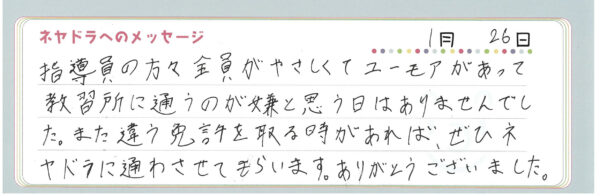 ネヤドラへのメッセージ 1月 26日
指導員の方々全員がやさしくてユーモアがあって
教習所に通うのが嫌と思う日はありませんでし
た。また違う免許を取る時があれば、ぜひネ
ヤドラに通わさせてもらいます。ありがとうございました。